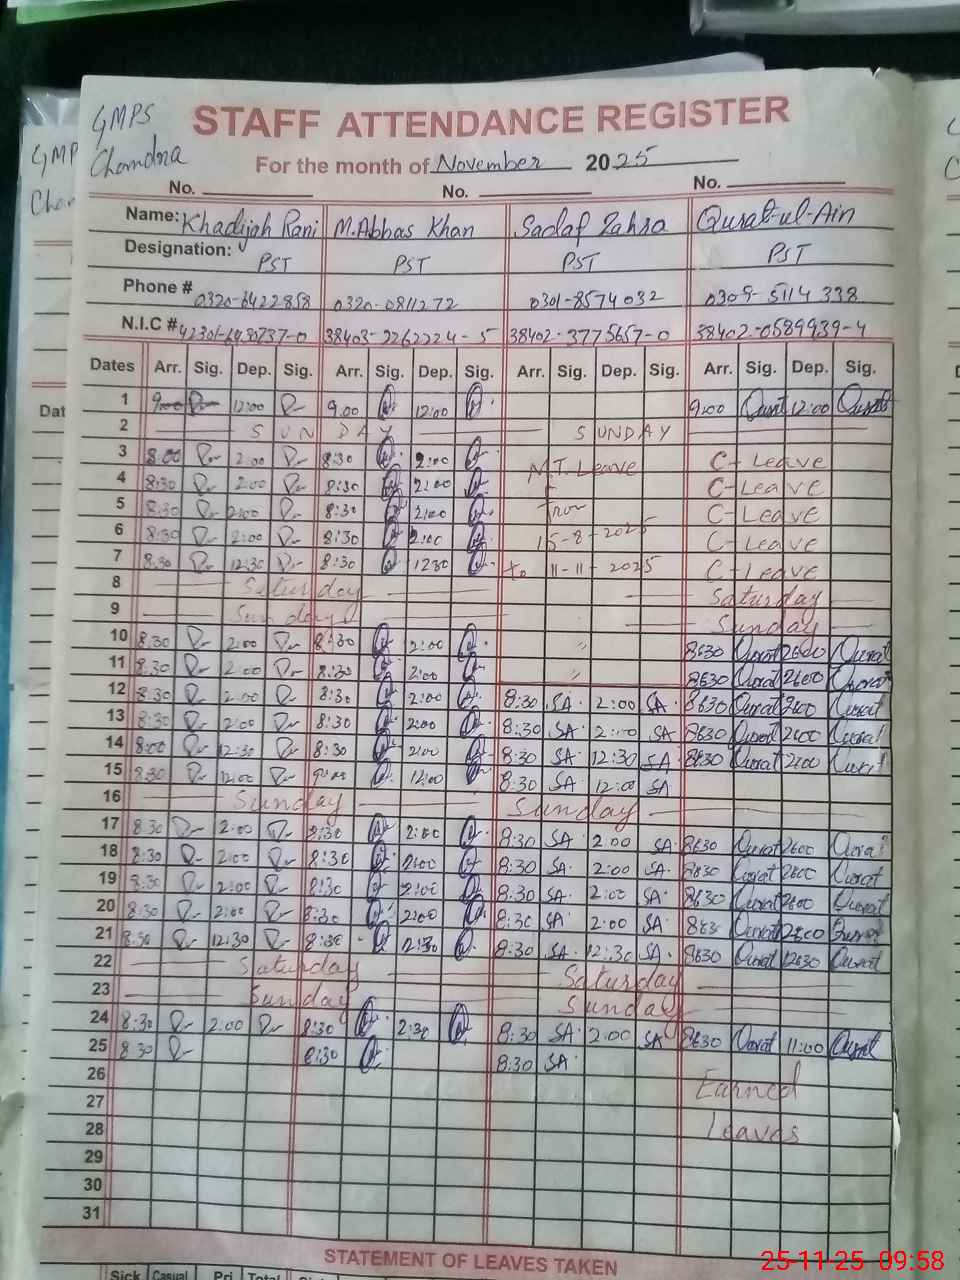 GMPS
STAFF ATTENDANCE REGISTER
Chandna
For the month of November 2025
No. No. No.
Name: Khadijah Rani M.Abbas Khan Sadaf Zahra Qurat-ul-Ain
Designation: PST PST PST PST
Phone # 0320-0811272 0301-8574032 0309-5114338
N.I.C # 38403-2262224-5 38402-3775657-0 38402-0589939-4
Dates Arr. Sig. Dep. Sig. Arr. Sig. Dep. Sig. Arr. Sig. Dep. Sig. Arr. Sig. Dep. Sig.
1 9:00 12:00 9.00 12:00 9:00 Qurat 12:00 Qurat
2 SUNDAY SUNDAY
3 8:00 2:00 8:30 2:00 M.T. Leave C-Leave
4 8:30 2:00 8:30 2:00 C-Leave
5 8:30 2:00 8:30 2:00 from C-Leave
6 8:30 2:00 8:30 2:00 15-8-2025 C-Leave
7 8:30 12:30 8:30 1230 to 11-11-2025 C-Leave
8 Saturday Saturday
9 Sunday Sunday
10 8:30 2:00 8:30 2:00 〃 8:30 Qurat 2:00 Qurat
11 8:30 2:00 8:30 2:00 〃 8:30 Qurat 2:00 Qurat
12 8:30 2:00 8:30 2:00 8:30 SA 2:00 SA 8:30 Qurat 2:00 Qurat
13 8:30 2:00 8:30 2:00 8:30 SA 2:00 SA 8:30 Qurat 2:00 Qurat
14 8:00 12:30 8:30 2:00 8:30 SA 12:30 SA 8:30 Qurat 2:00 Qurat
15 8:30 12:00 12:00 8:30 SA 12:00 SA
16 Sunday Sunday
17 8:30 2:00 8:30 2:00 8:30 SA 2:00 SA 8:30 Qurat 2:00 Qurat
18 8:30 2:00 8:30 2:00 8:30 SA 2:00 SA 8:30 Qurat 2:00 Qurat
19 8:30 2:00 8:30 2:00 8:30 SA 2:00 SA 8:30 Qurat 2:00 Qurat
20 8:30 2:00 8:30 2:00 8:30 SA 2:00 SA 8:30 Qurat 2:00 Qurat
21 8:30 12:30 8:30 12:30 8:30 SA 12:30 SA 8:30 Qurat 12:30 Qurat
22 Saturday Saturday
23 Sunday Sunday
24 8:30 2:00 8:30 2:30 8:30 SA 2:00 SA 8:30 Qurat 11:00 Qurat
25 8:30 8:30 8:30 SA
26 Earned
27
28 Leaves
29
30
31
STATEMENT OF LEAVES TAKEN
25-11-25 09:58
Sick Casual Pri Total